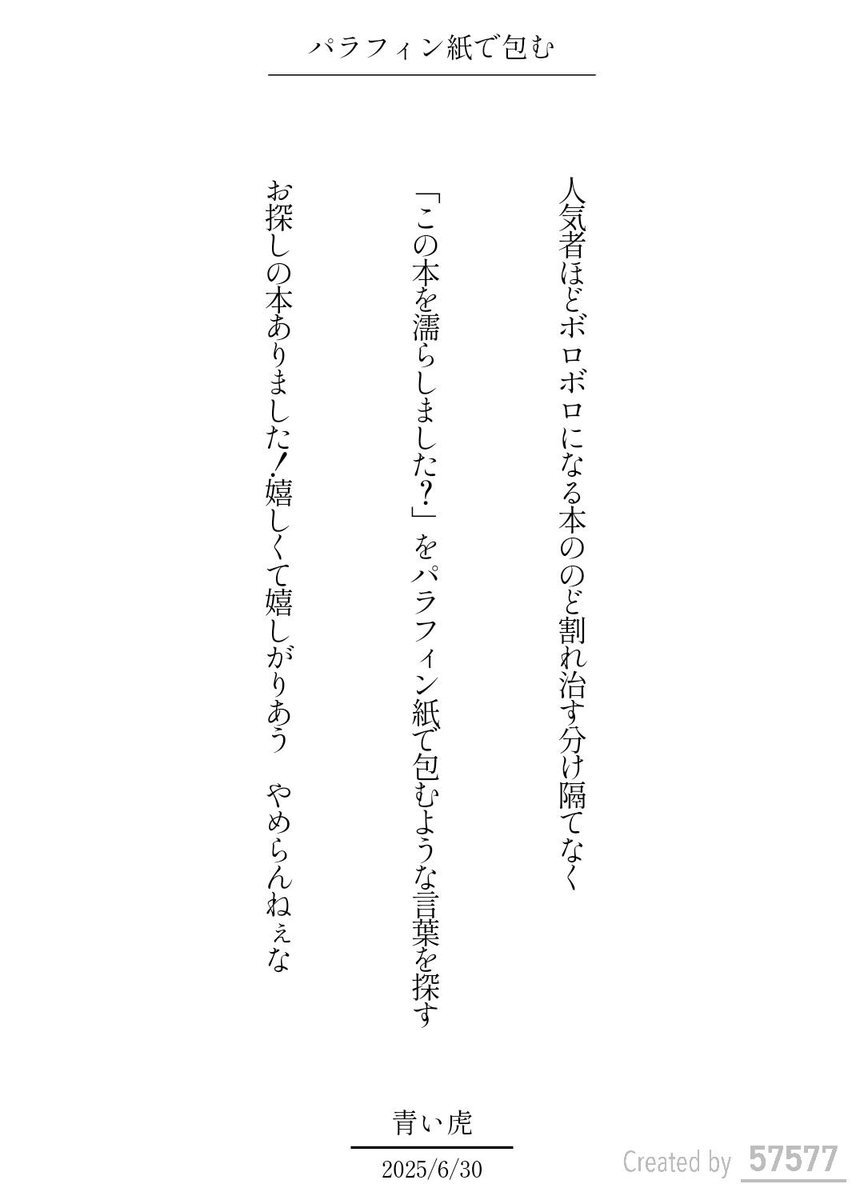 パラフィン紙で包む
人気者ほどボロボロになる本ののど割れ治す分け隔てなく
「この本を濡らしました？」をパラフィン紙で包むような言葉を探す
お探しの本ありました！嬉しくて嬉しがりあう　やめらんねぇな
青い虎
2025/6/30
Created by 57577